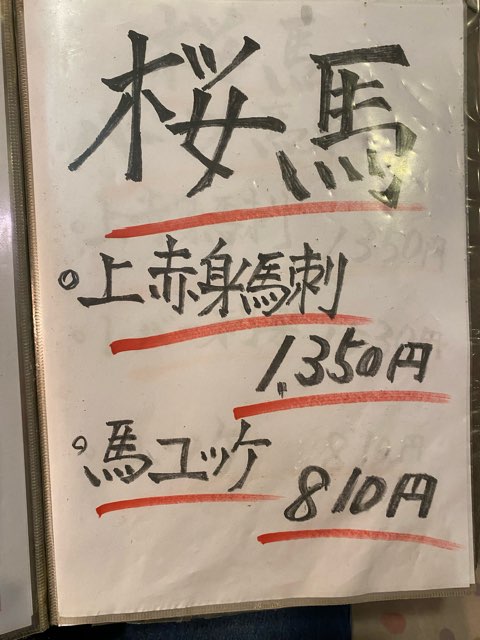 桜馬
○上赤身馬刺
1,350円
○馬ユッケ
810円